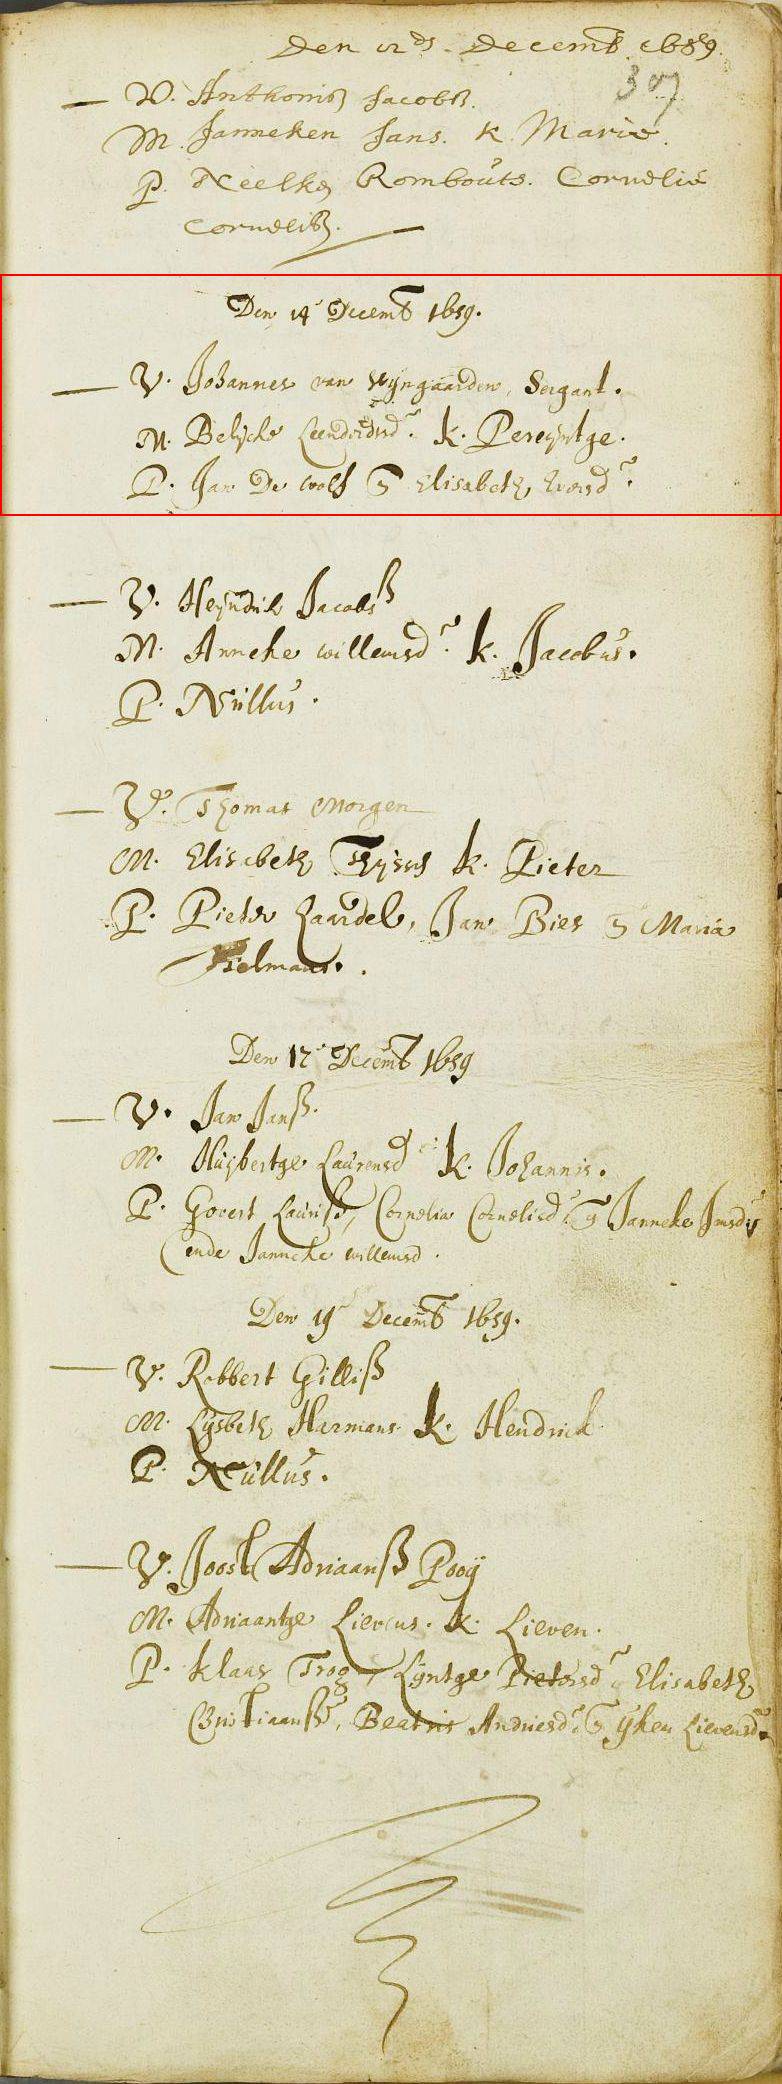 Den 12ds. Decemb 1659.
307
V. Anthonis Jacobß.
M. Janneken Jans. K Maria.
P. Neelke Rombouts. Cornelia
Corneliß.
Den 14 Decemb 1659.
V. Johannes van Wijngaarden, Sergant.
M. Belijcke Leenderdsdr. K. Pereyntge.
P. Jan De wolf & Elisabeth Eversdr.
V. Heyndrik Jacobsß
M. Anneke willemsdr. K. Jacobus.
P. Nullus.
V. Thomas Morgen
M. Elisebeth Thijssen K. Pieter
P. Pieter Laardel, Jan Bies & Maria
Tielmans.
Den 17 Decemb 1659
V. Jan Janß.
M. Huijbertge Laurensd K. Johannis.
P. Govert Laurisse, Cornelia Cornelisdr & Janneke Jansdr
ende Janneke willemsd.
Den 19 Decemb 1659.
V. Robbert Gilliß
M. Lijsbeth Harmans K. Hendrick
P. Nullus.
V. Joost Adriaanß Pooij
M. Adriaantge Lievens. K. Lieven.
P. Klaas Trog, Lijntge Pietersdr Elisabeth
Christiaanß, Beatris Andriesdr & ijken Lievensdr